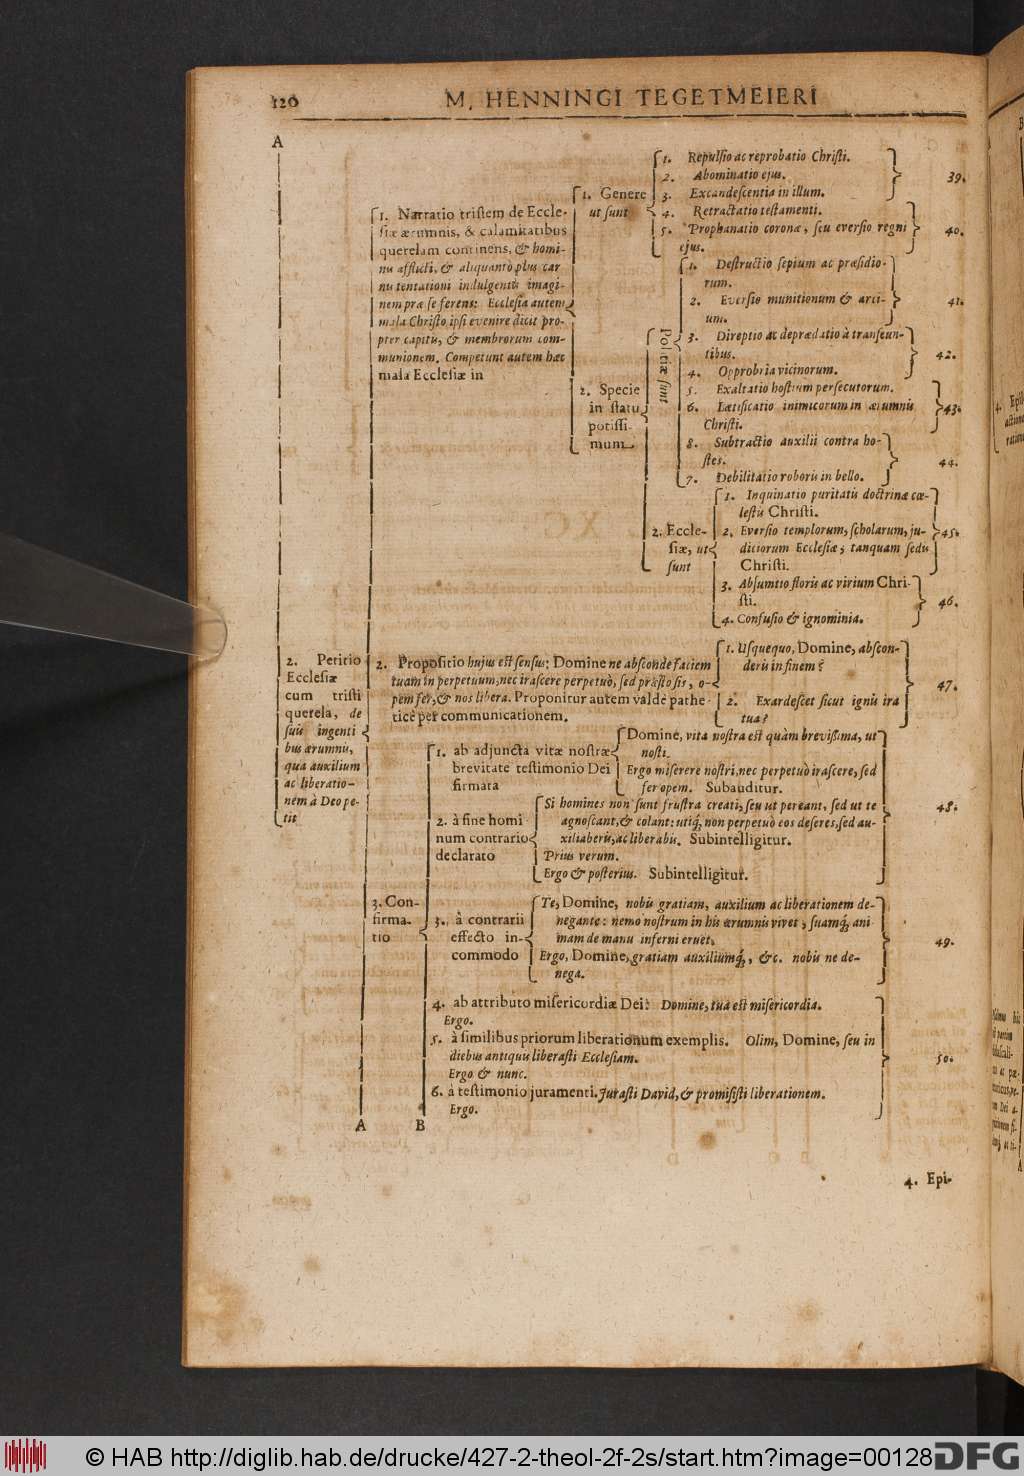 120
M. HENNINGI TEGETMEIERI
A
2. Petitio
Ecclesiæ
cum tristi
querela, de
suis ingenti
bus ærumnis,
qua auxilium
ac liberatio-
nem à Deo pe-
tit
1. Narratio tristem de Eccle-
siæ ærumnis, & calamitatibus
querelam continens, & homi-
nis afflicti, & aliquantò plus car
nis tentationi indulgentis imagi-
nem præ se ferens: Ecclesia autem
mala Christo ipsi evenire dicit pro-
pter capitis, & membrorum com-
munionem. Competunt autem hæc
mala Ecclesiæ in
1. Genere
ut sunt
1. Repulsio ac reprobatio Christi.
2. Abominatio ejus.
3. Excandescentia in illum.
39.
4. Retractatio testamenti.
5. Prophanatio coronæ, seu eversio regni
ejus.
40.
2. Specie
in statu
potissi-
mum
Politiæ sunt
1. Destructio sepium ac præsidio-
rum.
2. Eversio munitionum & arci-
um.
41.
3. Direptio ac deprædatio à transeun-
tibus.
4. Opprobria vicinorum.
42.
5. Exaltatio hostium persecutorum.
6. Lætificatio inimicorum in ærumnis
Christi.
43.
8. Subtractio auxilii contra ho-
stes.
7. Debilitatio roboris in bello.
44.
2. Eccle-
siæ, ut
sunt
1. Inquinatio puritatis doctrinæ cœ-
lestis Christi.
2. Eversio templorum, scholarum, ju-
diciorum Ecclesiæ, tanquam sedis
Christi.
45.
3. Absumtio floris ac virium Chri-
sti.
4. Confusio & ignominia.
46.
2. Propositio hujus est sensus: Domine ne absconde faciem
tuam in perpetuum, nec irascere perpetuò, sed præsto sis, o-
pem fer, & nos libera. Proponitur autem valdè pathe-
ticè per communicationem.
1. Usquequo, Domine, abscon-
deris in finem?
2. Exardescet sicut ignis ira
tua?
47.
3. Con-
firma-
tio
1. ab adjuncta vitæ nostræ
brevitate testimonio Dei
firmata
Domine, vita nostra est quàm brevissima, ut
nosti.
Ergo miserere nostri, nec perpetuò irascere, sed
fer opem. Subauditur.
2. à fine homi
num contrario
declarato
Si homines non sunt frustra creati, seu ut pereant, sed ut te
agnoscant, & colant: utiq́; non perpetuò eos deseres, sed au-
xiliaberis, ac liberabis. Subintelligitur.
Prius verum.
Ergo & posterius. Subintelligitur.
48.
3. à contrarii
effecto in-
commodo
Te, Domine, nobis gratiam, auxilium ac liberationem de-
negante: nemo nostrum in his ærumnis vivet, suamq́; ani
mam de manu inferni eruet.
Ergo, Domine, gratiam auxiliumq́;, &c. nobis ne de-
nega.
49.
4. ab attributo misericordiæ Dei: Domine, tua est misericordia.
Ergo.
5. à similibus priorum liberationum exemplis. Olim, Domine, seu in
diebus antiquis liberasti Ecclesiam.
Ergo & nunc.
6. à testimonio juramenti. Jurasti David, & promisisti liberationem.
Ergo.
50.
A B
4. Epi-
© HAB http://diglib.hab.de/drucke/427-2-theol-2f-2s/start.htm?image=00128
DFG